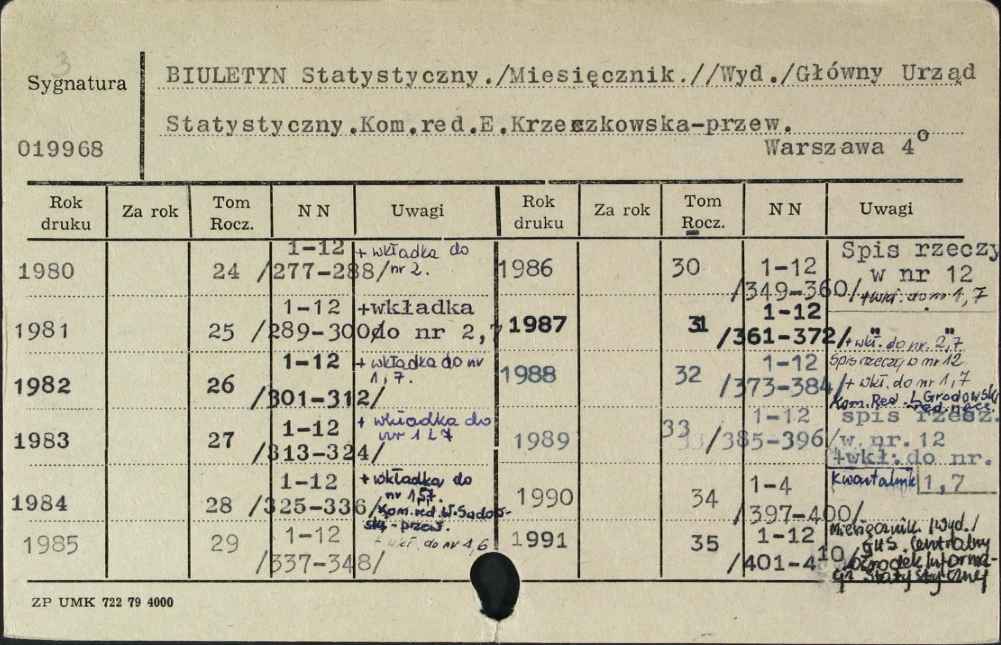 3
Sygnatura
BIULETYN Statystyczny./Miesięcznik.//Wyd./Główny Urząd
Statystyczny.Kom.red.E.Krzeczkowska-przew.
019968
Warszawa 4°
Rok druku Za rok Tom Rocz. N N Uwagi Rok druku Za rok Tom Rocz. N N Uwagi
1980 24 1-12 /277-288/ + wkładka do nr 2.
1981 25 1-12 /289-300/ +wkładka do nr 2,7
1982 26 1-12 /301-312/ + wkładka do nr 1,7.
1983 27 1-12 /313-324/ + wkładka do nr 1 i 7
1984 28 1-12 /325-336/ + wkładka do nr 1,7. Kom.red.W.Sadowski-przew.
1985 29 1-12 /337-348/ + wkł. do nr 1,6
1986 30 1-12 /349-360/ Spis rzeczy w nr 12 +wkł. do nr 1,7
1987 31 1-12 /361-372/ " " +wkł. do nr. 2,7
1988 32 1-12 /373-384/ Spis rzeczy w nr 12 + wkł. do nr 1,7 Kom.Red. Ł Grodowski red.nacz.
1989 33 1-12 /385-396/ spis rzecz. w nr. 12 +wkł: do nr. 1,7
1990 34 1-4 /397-400/ kwartalnik
1991 35 1-12 /401-410/ Miesięcznik /Wyd./ GUS. Centralny Ośrodek Informacji Statystycznej
ZP UMK 722 79 4000